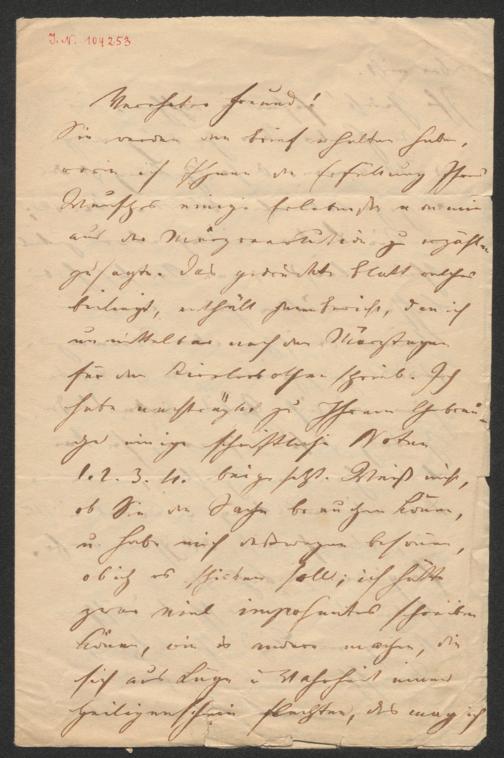 J. N. 104253
Verehrter Freund!
Sie werden den Brief erhalten haben,
worin ich Ihnen die Erfüllung Ihres
Wunsches einige Erlebnisse von mir
aus der Märzrevolution zu erzählen
zusagte. Das gedruckte Blatt welches
beiliegt, enthält den Bericht, den ich
unmittelbar nach den Märztagen
für den Tirolerbothen schrieb. Ich
habe nachträglich zu Ihrem Gebrau-
che einige schriftliche Noten
1. 2. 3. 4. beigesetzt. Weiß nicht,
ob Sie die Sache brauchen können,
u. habe mich deßwegen besonnen,
ob ich es schicken soll; ich hätte
zwar viel imposantes schreiben
können, wie es andere machen, die
sich aus Lüge u Wahrheit einen
Heiligenschein flechten, das mag ich